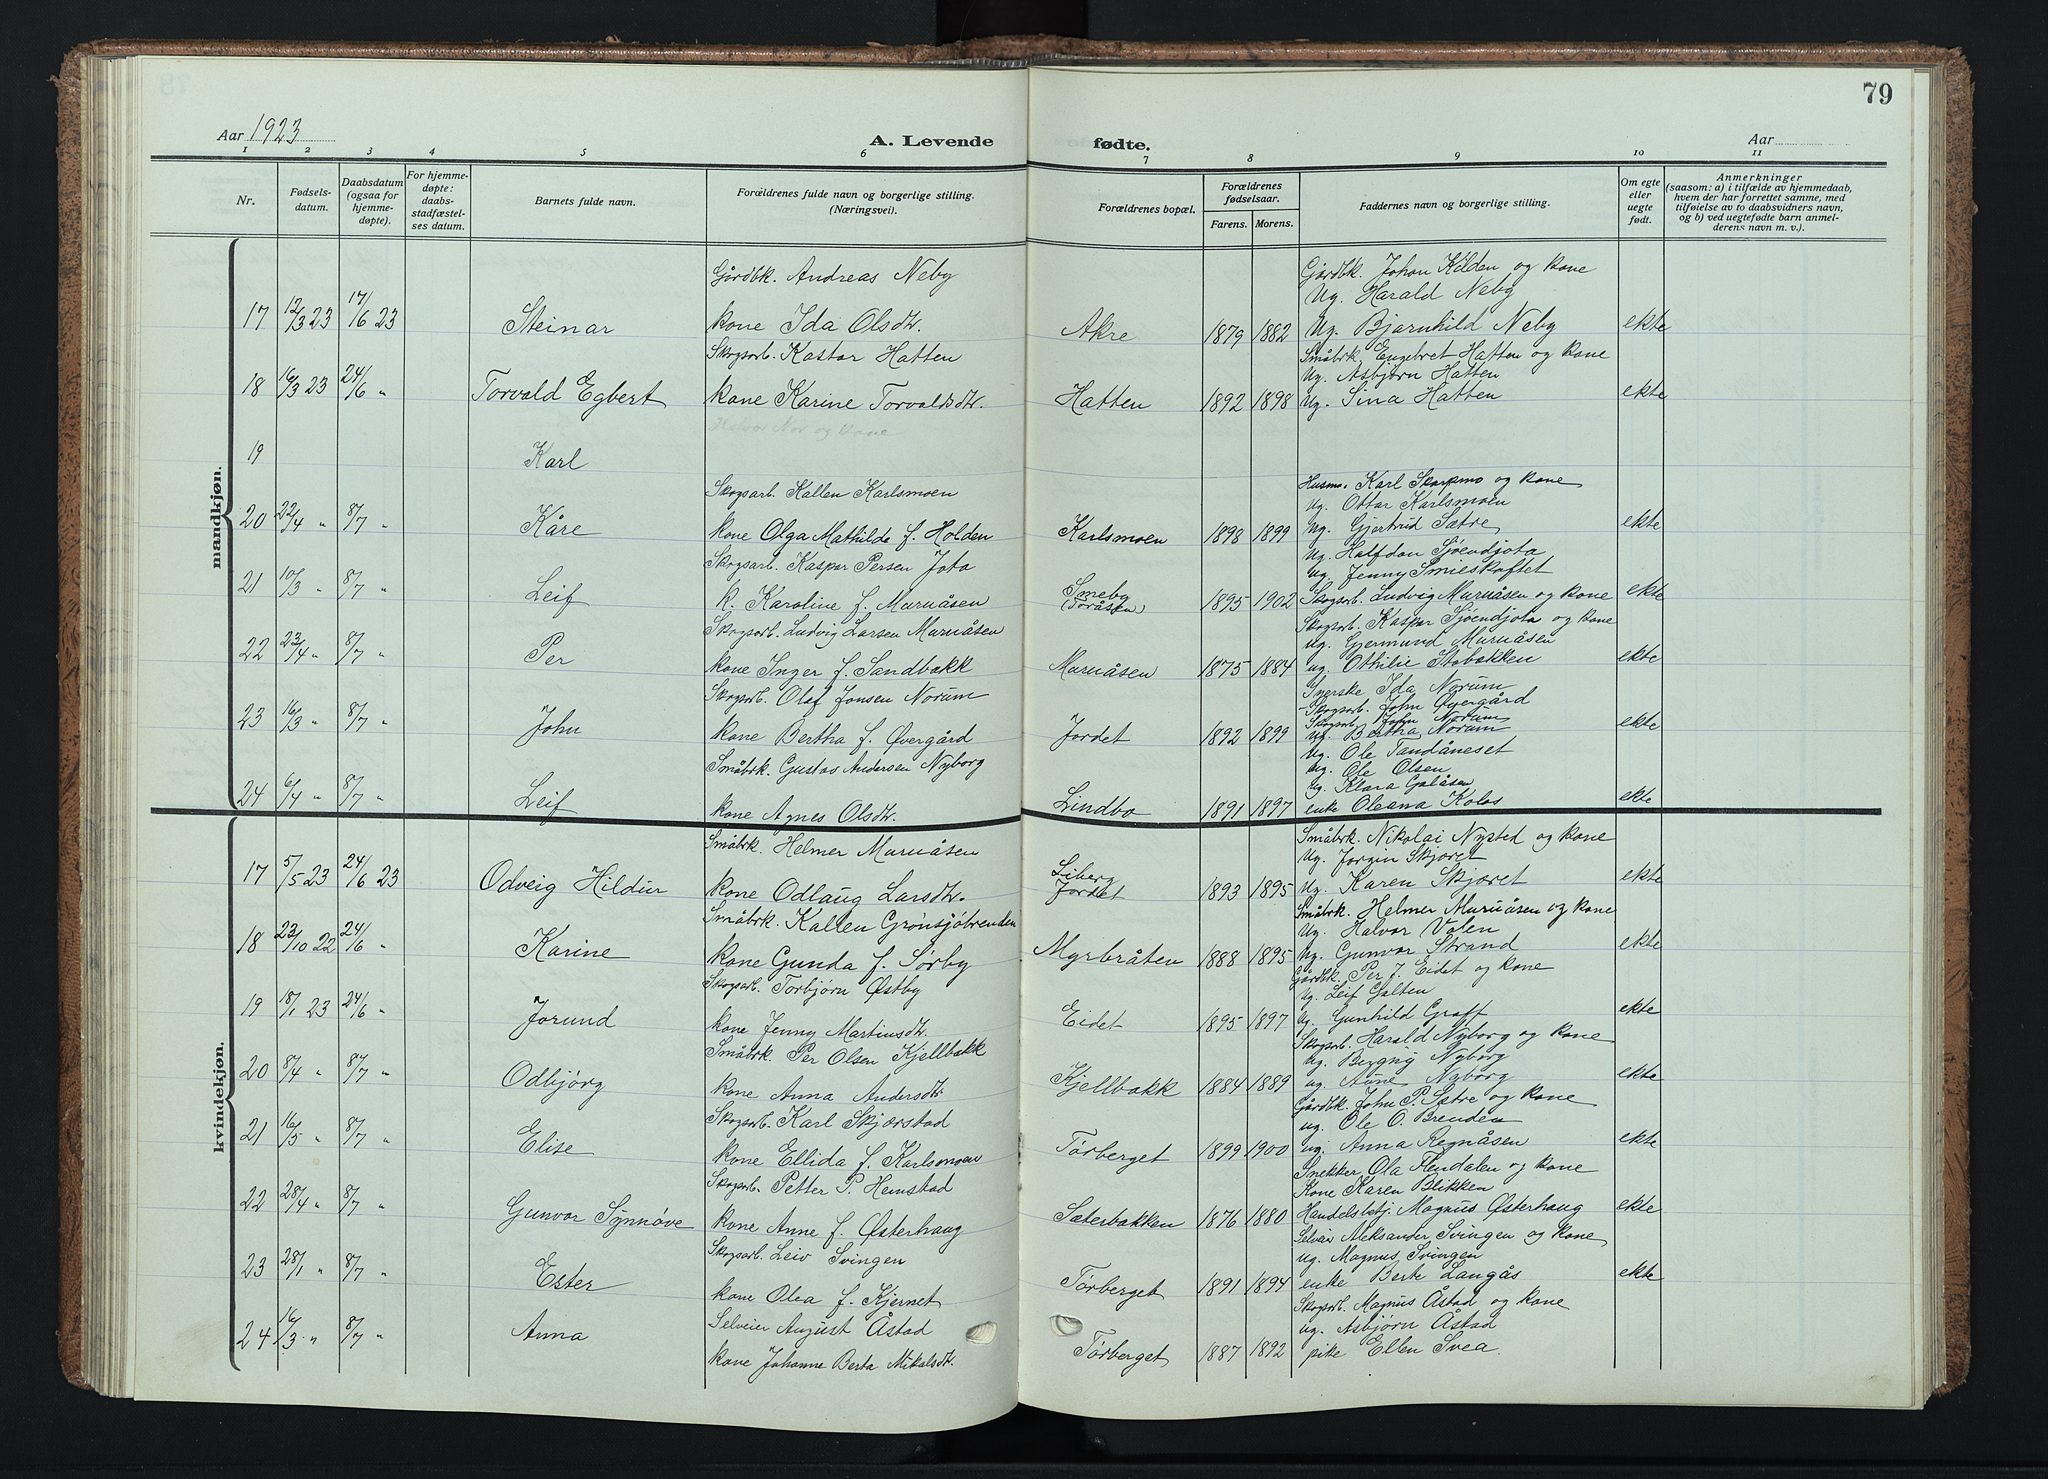 79
Aar 1923
A. Levende
fødte.
Aar
1 2 3 4 5 6 7 8 9 10 11
Nr.
Fødsels-
datum.
Daabsdatum
(ogsaa for
hjemme-
døpte).
For hjemme-
døpte:
daabs-
stadfæstel-
ses datum.
Barnets fulde navn.
Forældrenes fulde navn og borgerlige stilling.
(Næringsvei).
Forældrenes bopæl.
Forældrenes
fødselsaar.
Farens. Morens.
Faddernes navn og borgerlige stilling.
Om egte
eller
uegte
født.
Anmerkninger
(saasom: a) i tilfælde av hjemmedaab,
hvem der har forrettet samme, med
tilføielse av to daabsvidners navn,
og b) ved uegtefødte barn anmel-
derens navn m. v.).
mandkjøn.
Gårdbk. Andreas Neby
Gårdbk. Johan Kilden og kone
Ug. Harald Neby
17 12/3 23 17/6 23 Steinar kone Ida Olsdtr. Akre 1879 1882 Ug. Bjarnhild Neby ekte
Skogsarb. Kastor Hatten
Småbrk. Engebret Hatten og kone
Ug. Asbjørn Hatten
18 16/3 23 24/6 " Torvald Egbert kone Karine Torvaldsdtr. Hatten 1892 1898 Ug. Sina Hatten ekte
Halvor Nor og kone
19 Karl
Skogsarb. Kallen Karlsmoen
Husm. Karl Skarpmo og kone
Ug. Ottar Karlsmoen
20 22/4 " 8/7 " Kåre kone Olga Mathilde f. Holden Karlsmoen 1898 1899 Ug. Gjertrud Sætre ekte
Skogsarb. Kaspar Persen Jota
Ug. Halfdan Sjøendjota
ug. Jenny Smieskaftet
21 10/3 " 8/7 " Leif k. Karoline f. Muruåsen Smeby (Toråsen) 1895 1902 Skogsarb. Ludvig Muruåsen og kone ekte
Skogsarb. Ludvig Larsen Muruåsen
Skogsarb. Kaspar Sjøendjota og kone
ug. Gjermund Muruåsen
22 23/4 " 8/7 " Per kone Inger f. Sandbakk Muruåsen 1875 1884 ug. Othilie Stabakken ekte
Skogsarb. Olaf Jonsen Norum
Snerske Ida Norum
Skogsarb. John Øvergård
Skogsarb. John Norum
23 16/3 " 8/7 " John kone Bertha f. Øvergård Jordet 1892 1899 ug. Bertha Norum ekte
Småbrk. Gustav Andersen Nyborg
Ug. Ole Tandåneset
Ug. Ole Olsen
Ug. Klara Galåsen
24 6/4 " 8/7 " Leif kone Agnes Olsdtr. Lindbo 1891 1897 enke Oleana Kolos ekte
kvindekjøn.
Småbrk. Helmer Muruåsen
Småbrk. Nikolai Nysted og kone
Ug. Jorgin Skjæret
17 5/5 23 24/6 23 Odveig Hildur kone Odlaug Larsdtr. Liberg Jordet 1893 1895 Ug. Karen Skjæret ekte
Småbrk. Kallen Grønsjøbrenden
Småbrk. Helmer Muruåsen og kone
Ug. Halvor Volen
18 23/10 22 24/6 " Karine kone Gunda f. Sørby Myrbråten 1888 1895 Ug. Gunvor Strand ekte
Skogsarb. Torbjørn Østby
Gårdbk. Per J. Eidet og kone
Ug. Leif Galten
19 18/1 23 24/6 " Jorund kone Jenny Martinsdtr. Eidet 1895 1897 Ug. Gunhild Graff ekte
Småbrk. Per Olsen Kjellbakk
Skogsarb. Harald Nyborg og kone
Ug. Bergny Nyborg
20 8/4 " 8/7 " Odbjørg kone Anna Andersdtr. Kjellbakk 1884 1889 ug. Aune Nyborg ekte
Skogsarb. Karl Skjærstad
Gårdbk. John P. Sætre og kone
ug. Ole O. Brenden
21 16/5 " 8/7 " Elise kone Ellida f. Karlsmoen Tørberget 1899 1900 ug. Anna Regnåsen ekte
Skogsarb. Petter P. Hemstad
Snekker Ola Flendalen og kone
Kone Karen Blikken
22 28/4 " 8/7 " Gunvor Synnøve kone Anne f. Østerhaug Sæterbakken 1876 1880 Handelsbetj. Magnus Østerhaug ekte
Skogsarb. Leiv Svingen
Selveier Aleksander Svingen og kone
ug. Magnus Svingen
23 28/1 " 8/7 " Ester kone Olea f. Kjernet Tørberget 1891 1894 enke Berte Langås ekte
Selveier August Åstad
Skogsarb. Magnus Åstad og kone
ug. Asbjørn Åstad
24 16/3 " 8/7 " Anna kone Johanne Berta Mikalsdtr. Tørberget 1887 1892 pike Ellen Svea.